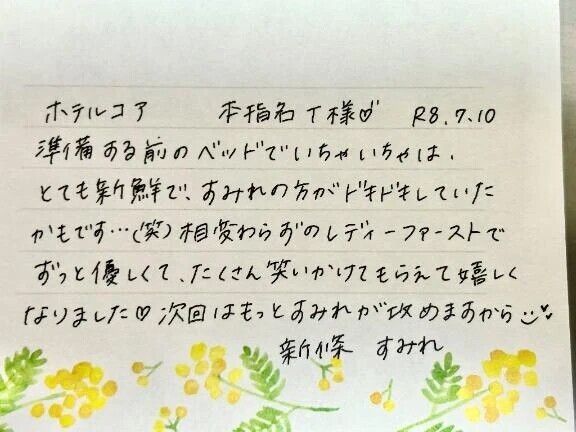 ホテルコア 本指名 T様♡ R8.7.10
準備する前のベッドでいちゃいちゃは、
とても新鮮で、すみれの方がドキドキしていた
かもです…(笑)相変わらずのレディーファーストで
ずっと優しくて、たくさん笑いかけてもらえて嬉しく
なりました♡次回はもっとすみれが攻めますから
新條 すみれ